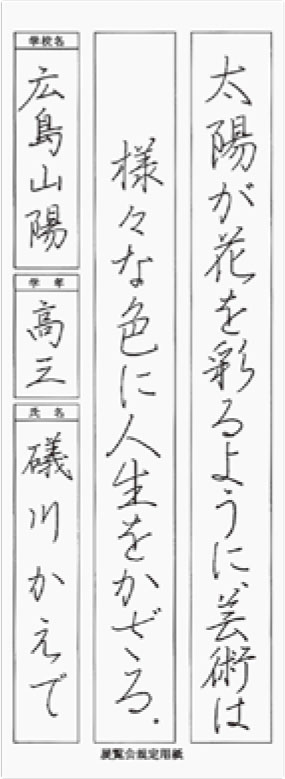 太陽が花を彩るように、芸術は
様々な色に人生をかざる.
学校名
広島山陽
学年
高三
氏名
礒川かえで
展覧会規定用紙